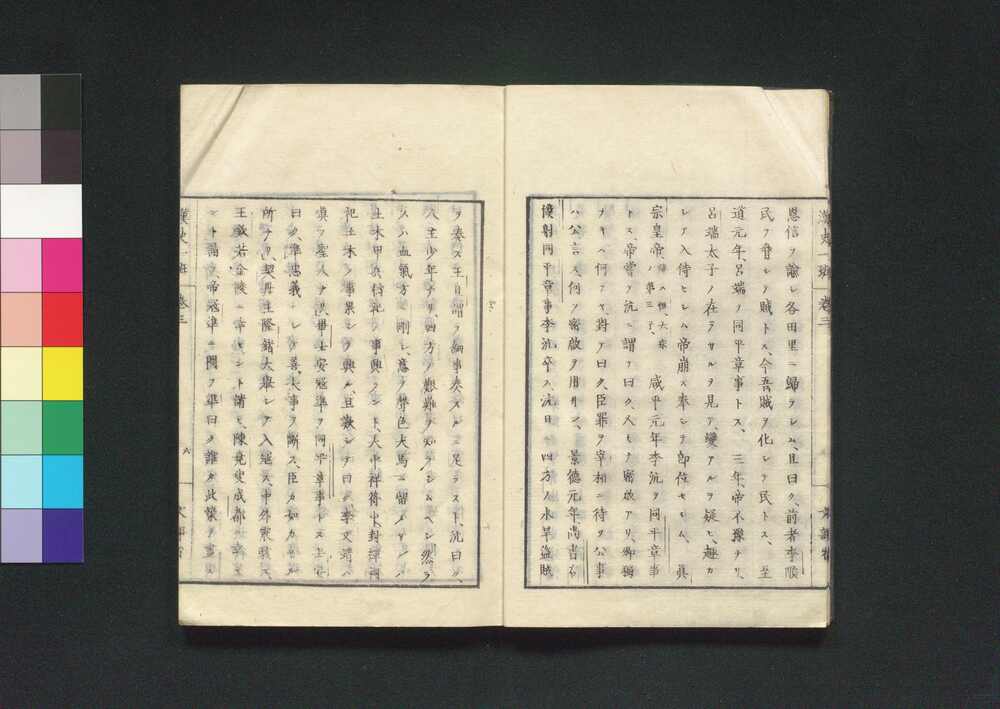 漢史一斑 卷三
恩信ヲ諭シ各田里ニ歸ラシム且曰ク、前者李順
民ヲ脅シテ賊トス、今吾賊ヲ化シテ民トス、至
道元年、呂端ヲ同平章事トス、三年、帝不豫ナリ、
呂端太子ノ在ラサルヲ見テ、變アルヲ疑ヒ、趣カ
シテ入侍セシム帝崩ス奉シテ卽位セシム、眞
宗皇帝、諱ハ恒、太宗ノ第三子、 咸平元年李沆ヲ同平章事
トス、帝嘗テ沆ニ謂テ曰ク、人皆密啟アリ、卿獨
ナキハ何ソヤ、對テ曰ク、臣罪ヲ宰相ニ待ツ公事
ハ公言ス何ソ密啟ヲ用ヰン、景德元年、尚書右
僕射同平章事李沆卒ス、沆日ニ四方ノ水旱盜賊
ヲ奏ス王旦謂ラク細事奏スルニ足ラスト、沆曰ク、
人主少年ナリ、四方ノ艱難ヲ知ラシムヘシ然ラ
スハ血氣方ニ剛シ、意ヲ聲色犬馬ニ留メ
土木甲兵禱祀ノ事興ラント、大中祥符中、封禪祠
祀土木ノ事果シテ興ル、旦歎シテ曰ク、李文靖ハ
眞ノ聖人ナリ畢士安寇準ヲ同平章事トス士安
曰ク準忠義ニシテ善ク大事ヲ斷ス、臣カ如カ
所ナリ、契丹主隆緒大擧シテ入寇ス、中外震駭ス、
王欽若金陵ニ幸センコトヲ請ヒ、陳堯叟成都ニ幸セ
ント請フ、帝寇準ニ問フ準曰ク誰カ此策ヲ畫
漢史一斑 卷三 六